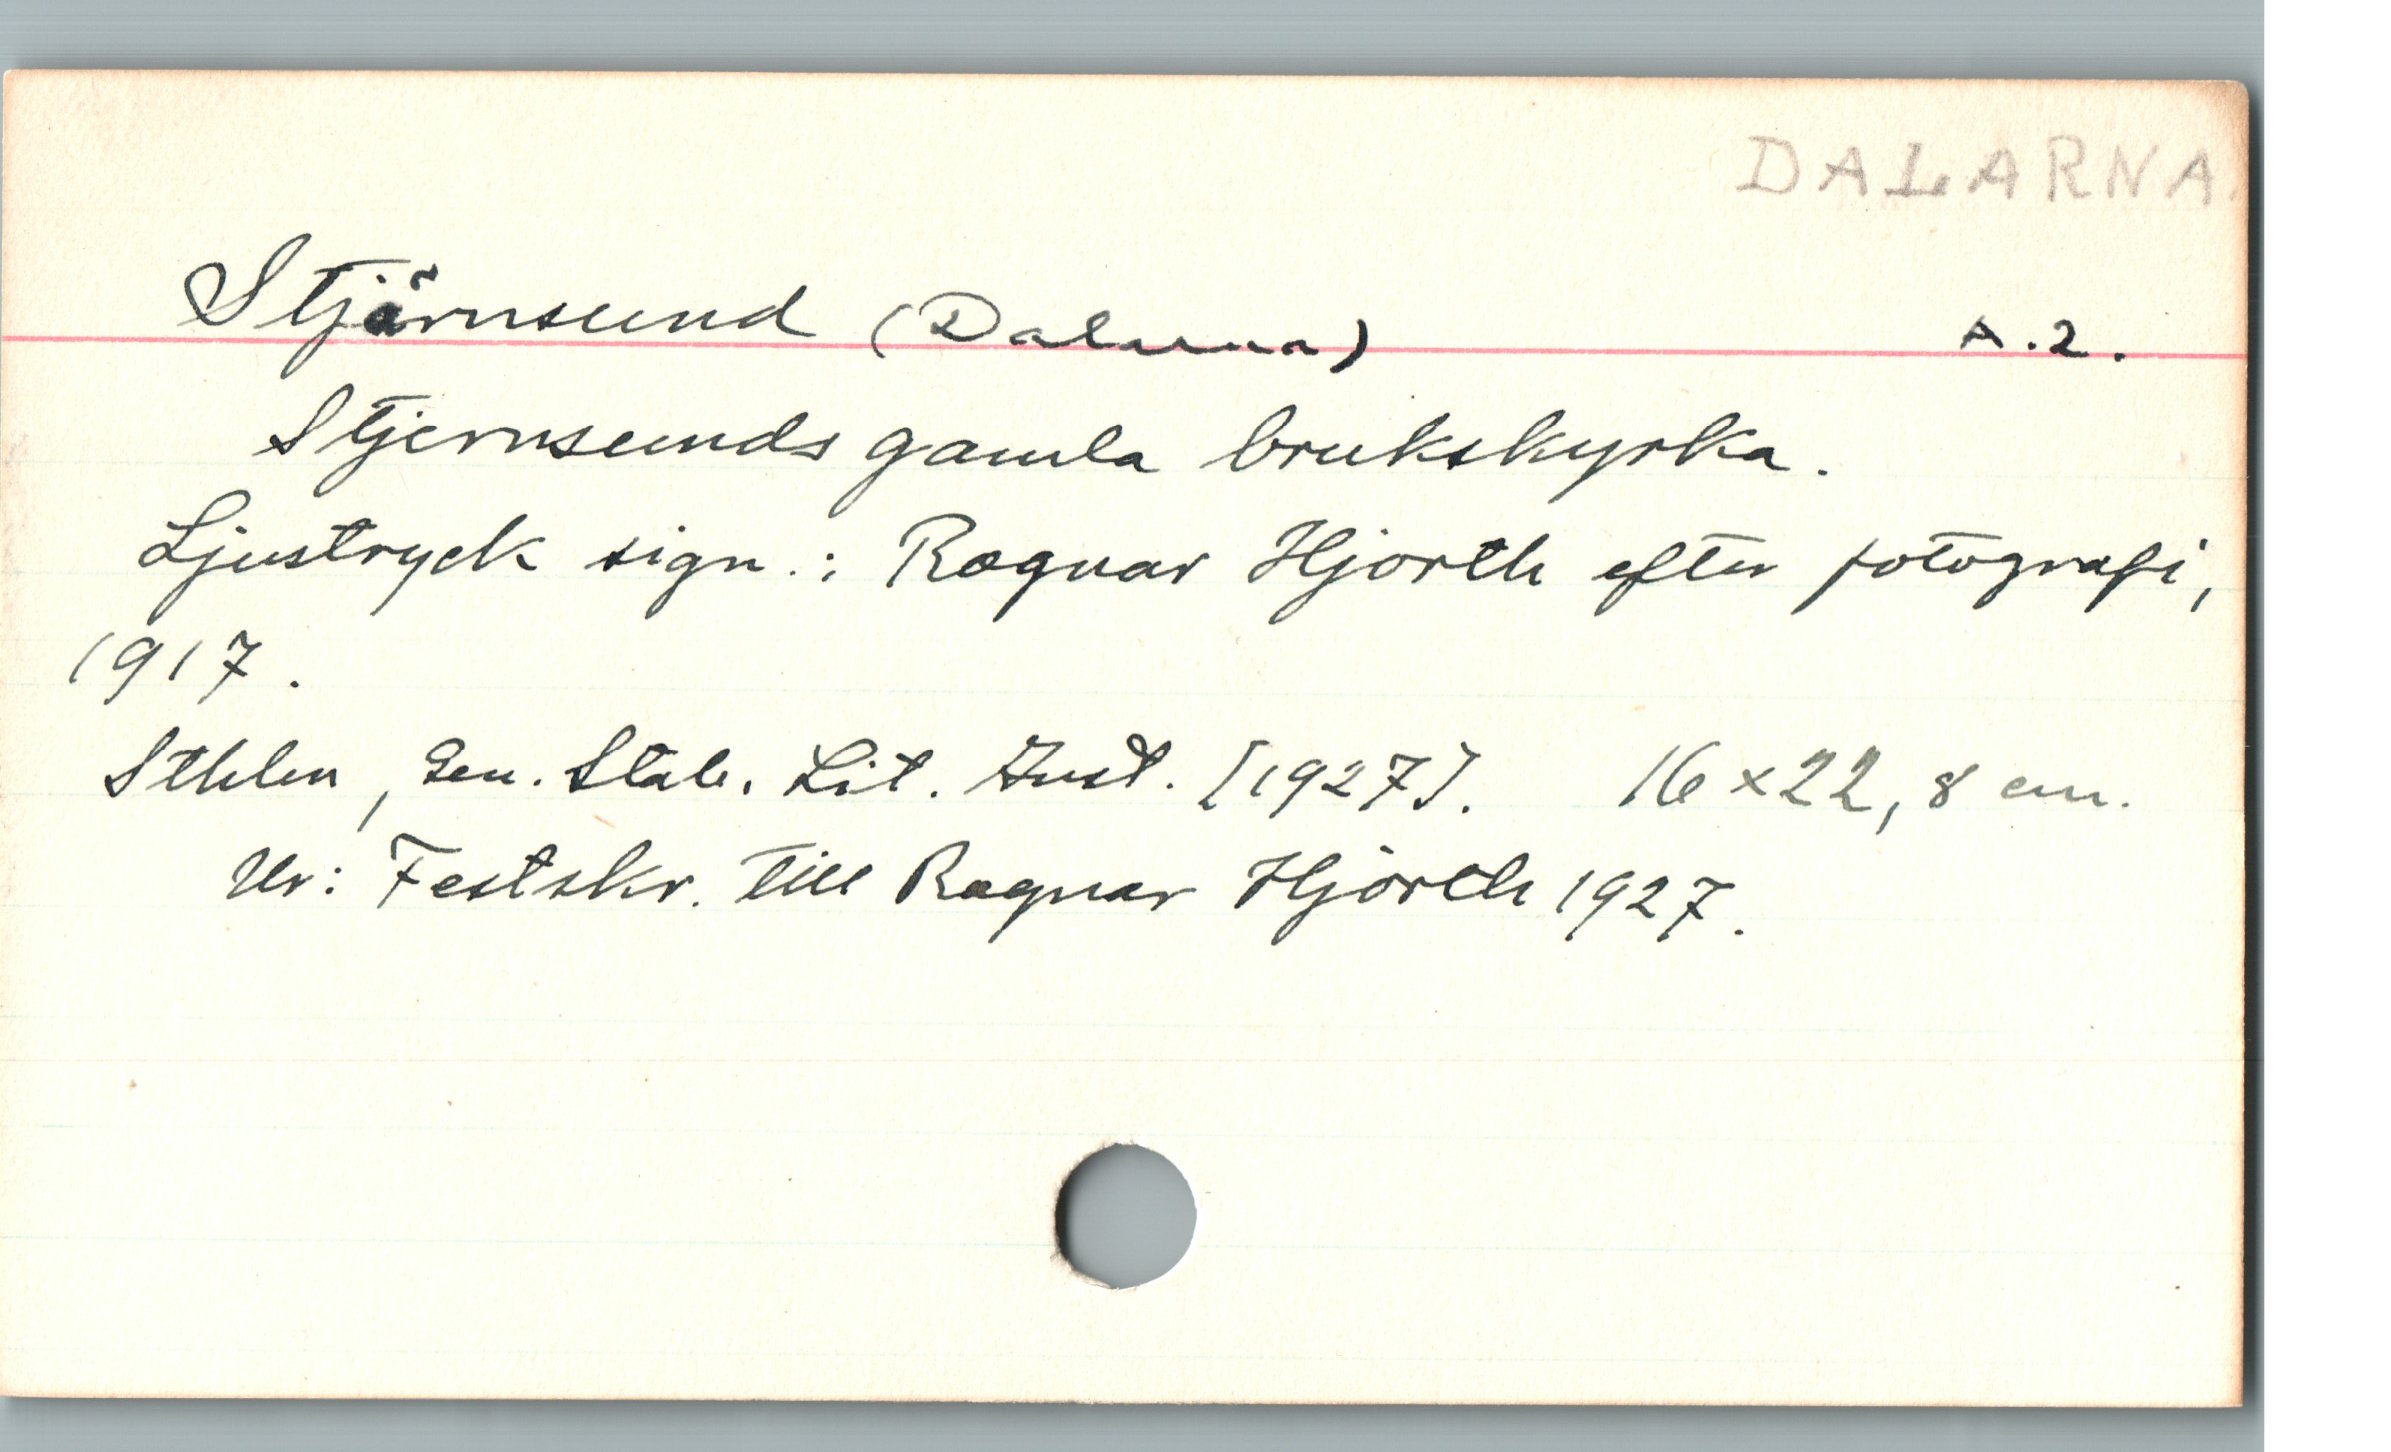 DALARNA.
Stjärnsund (Dalarna) A.2.
Stjernsunds gamla brukskyrka.
Ljustryck sign.: Ragnar Hjorth efter fotografi,
1917.
Sthlm, Gen. Stab. Lit. Inst. [1927]. 16 x 22,8 cm.
Ur: Festskr. till Ragnar Hjorth 1927.